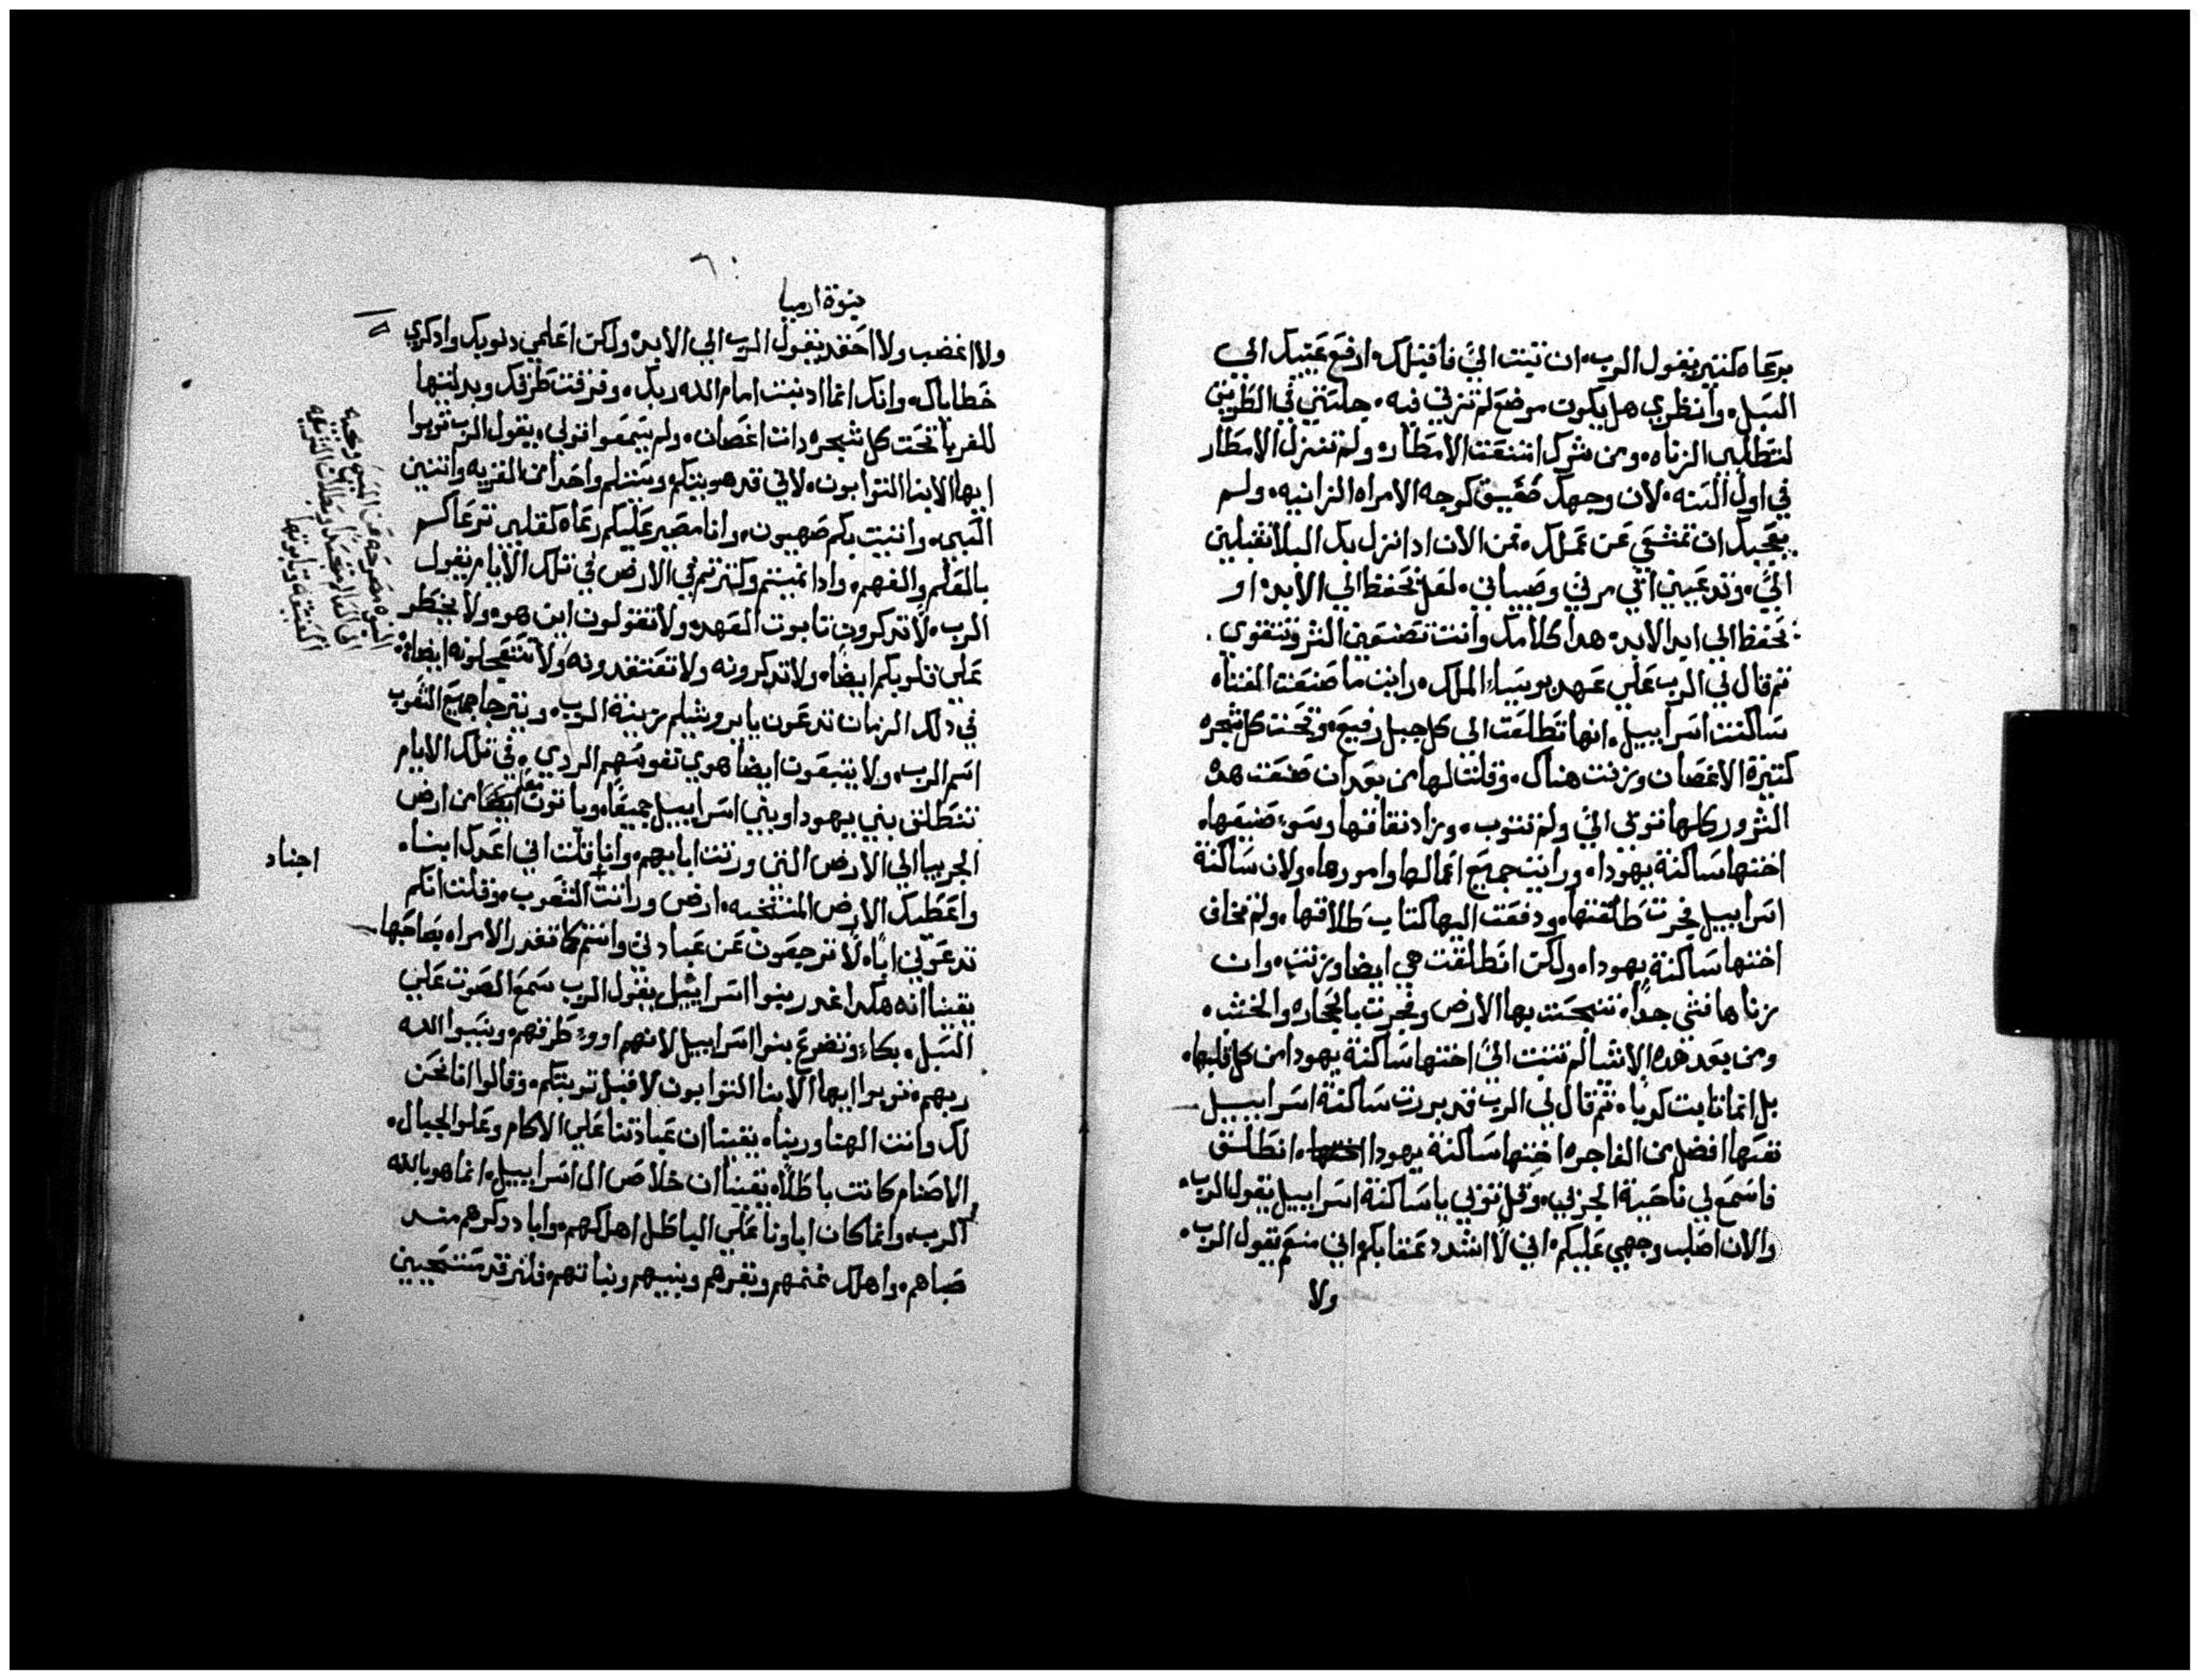 برعاه كثيرين يقول الرب، ان تبت اليَّ فاقبلك، ارفع عينيك الي
السبل، وانظري هل يكون موضع لم تزني فيه، جلستي في الطريق
لتطلبي الزناه، ومن شرك امتنعت الامطار، ولم تنزل الامطار
في اول السنه، لان وجهك صفيق كوجه الامراه الزانيه، ولم
يعجبك ان تمشي عن عملك، فمن الان اذا نزل بك البلا تقبلين
اليَّ، وتدعيني انتي مربي وصباني، لعل تحفظ الي الابد، او
تحفظ الي ابد الابد، هدا كلامك وانت تصنعين الشر وتتقوي.
ثم قال لي الرب علي عهد يوسيا الملك، رايت ما صنعت الفتاه
ساكنت اسراييل، انها تطلعت الي كل جبل رفيع، وتحت كل شجره
كثيرة الاغصان وزنت هناك، وقلت لها من بعد ان صنعت هده
الشرور كلها توبي اليَّ ولم تتوب، وزاد نفاقها وسوء صنيعها،
اختها ساكنة يهودا، ورايت جميع اعمالها وامورها، ولان ساكنة
اسراييل فجرت طلقتها، ودفعت اليها كتاب طلاقها، ولم تخاف
اختها ساكنة يهودا، ولكن انطلقت هي ايضا وزنت، وان
زناها فشي جدًا، تنجست بها الارض وفجرت بالحجاره والخشب،
ومن بعد هده الاشيا لم تتبت اليَّ اختها ساكنة يهودا من كل قلبها،
بل انما تابت كدبا، ثم قال لي الرب قد بررت ساكنة اسراييل
نفسها افضل من الفاجره اختها ساكنة يهودا، انطلق
فاسمع لي ناحية الجربي، وقل توبي يا ساكنة اسراييل يقول الرب،
والان اصلب وجهي عليكم، اني لا اشدد عنقابكم اني منعم يقول الرب،
ولا
٦٠
نبوة ارميا
ولا اغضب ولا احقد يقول الرب الي الابد، ولكن اعلمي دنوبك وادكري
خطاياك، وانك انما ادنبت امام الله ربك، وفرقت طرقك وبدلتيها
للغربا تحت كل شجره دات اغصان، ولم تسمعوا قولي، يقول الرب توبوا
ايها الابنا التوابون، لاني قد هويتكم وسنلم واحدا من القريه واتنين
السبي، واتيت بكم صهيون، وانا مصير عليكم رعاه كقلبي ترعاكم
بالعلم والفهم، وادا نميتم وكترتم في الارض في تلك الايام يقول
الرب، لا تدكرون تابوت العهد، ولا تقولون اين هو، ولا يخطر
علي قلوبكم ايضا، ولا تدكرونه ولا تفتقدونه ولا تستعجلونه ايضا،
في دلك الزمان تدعون يا يروشيلم بزينة الرب، ويترجا جميع الشعوب
اسم الرب، ولا يتبعون ايضا هوي نفوسهم الردي، في تلك الايام
تنطلق بني يهودا وبني اسراييل جميعًا، وياتون ايضا من ارض
الجربيا الي الارض التي ورتت اباييهم، وانا قلت اني اعدك ابنا،
واعطيك الارض المنتخبه، ارض وراتت الشعوب، وقلت انكم
تدعوني ابا، لا ترجعون عن عبادتي وانتم كما تغدر الامراه بصاحبها،
يقينا انه هكدا غدر بنوا اسراييل يقول الرب، سمع الصوت علي
السبل، بكاء وتضرع بنوا اسراييل لانهم اووء طرقهم، ونسوا الله
ربهم، توبوا ايها الابنا التوابون لاقبل توبتكم، وقالوا انا نحن
لك وانت الهنا وربنا، يقينا ان عبادتنا علي الاكام وعلو الجبال،
الاصنام كانت باطلًا، يقينا ان خلاص ال اسراييل، انما هو بالله
الرب، وانما كان اباونا علي الباطل اهلكهم، واباد وكرهم مند
صباهم، واهلك غنمهم وبقرهم وبنيهم وبناتهم، فلنرقد مستحيين
اجناد
النبوه مصرحه عن المسيح ومجيه
الي العالم متجسدًا وبطلان الشريعه
العتيقه وتابوتها